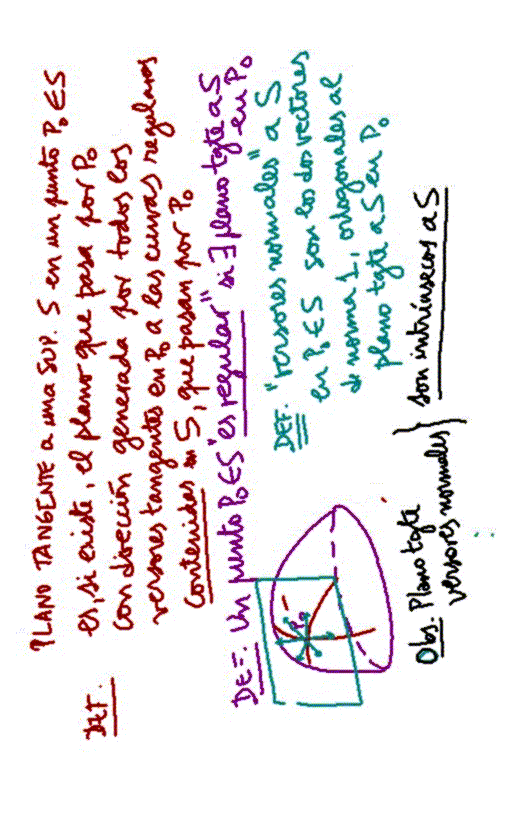 DEF. PLANO TANGENTE a una SUP. S en un punto P₀ ∈ S
es, si existe, el plano que pasa por P₀
con dirección generada por todos los
versores tangentes en P₀ a las curvas regulares
contenidas en S, que pasan por P₀
DEF. Un punto P₀ ∈ S "es regular" si ∃ plano tgte a S
en P₀
DEF. "versores normales" a S
en P₀ ∈ S son los dos vectores
de norma 1, ortogonales al
plano tgte a S en P₀
P₀
Obs. Plano tgte
versores normales } son intrínsecos a S